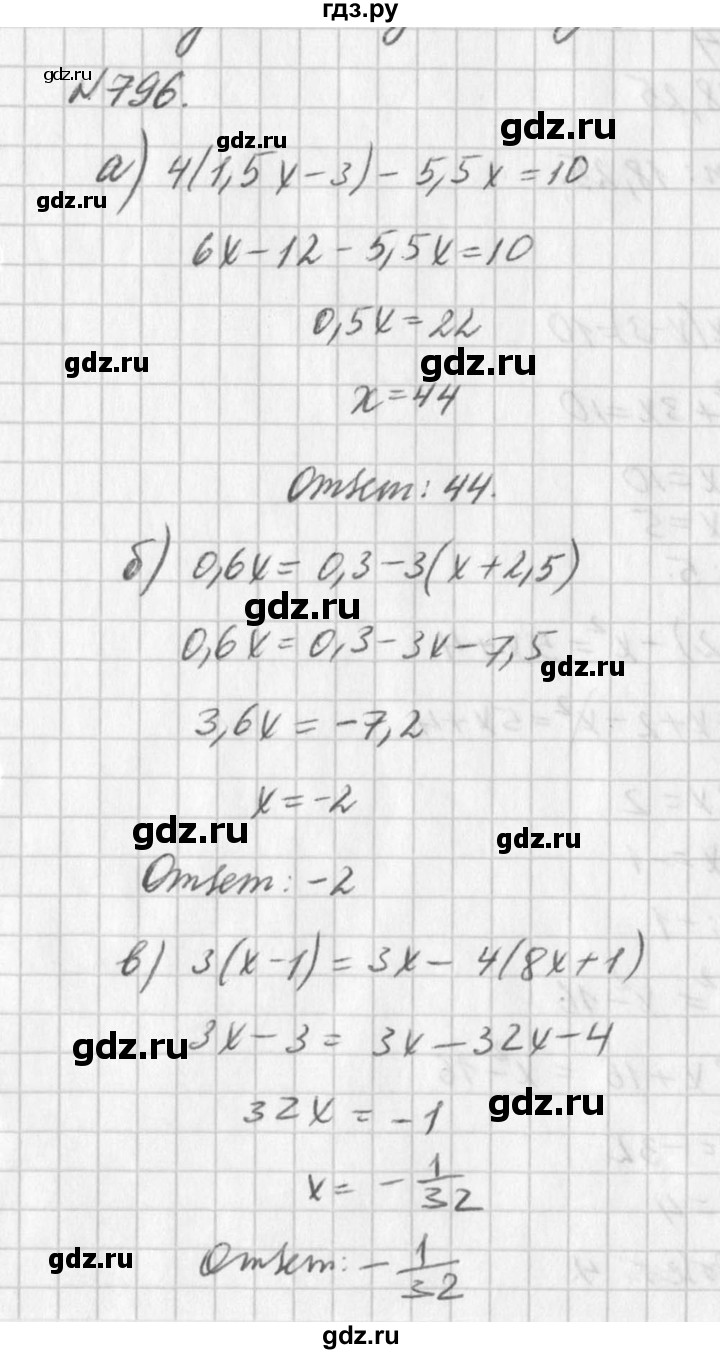 гдз.ру
gdz.ru
№796.
gdz.ru
gdz.ru
а) 4(1,5x-3)-5,5x=10
gdz.ru
6x-12-5,5x=10
0,5x=22
gdz.ru
gdz.ru
x=44
Ответ: 44.
б) 0,6x=0,3-3(x+2,5)
gdz.ru
0,6x=0,3-3x-7,5
gdz.ru
3,6x=-7,2
x=-2
gdz.ru
gdz.ru
Ответ: -2
в) 3(x-1)=3x-4(8x+1)
3x-3=3x-32x-4
gdz.ru
32x=-1
gdz.ru
x=-1/32
gdz.ru
Ответ: -1/32
gdz.ru